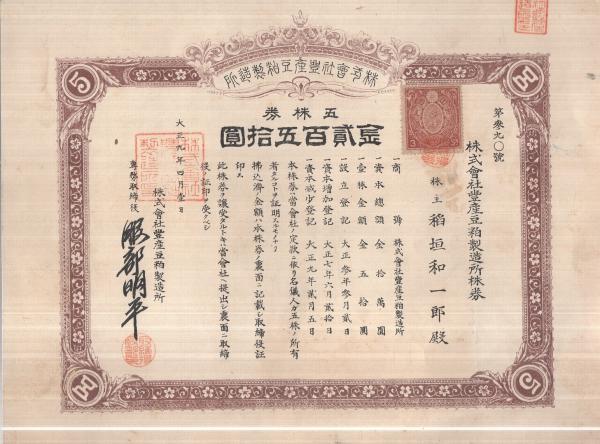 株式會社豐產豆粕製造所
五株券
金貳百五拾圓
第參九〇號
株式會社豐産豆粕製造所株券
株主 稻垣和一郎殿
一商號 株式會社豐産豆粕製造所
一資本總額 金拾萬圓
一壹株金額 金五拾圓
一設立登記 大正參年參月貳日
一資本增加登記 大正七年六月貳拾日
一資本減少登記 大正九年貳月五日
本株券ハ當會社ノ定款ニ依リ名儀人カ五株ノ所有
者タルコトヲ證明スルモノナリ
拂込濟金額ハ本株券ノ裏面ニ記載シ取締役証
印ス
此株券ヲ讓受タルトキハ當會社ヘ提出シ裏面ニ取締
役ノ証印ヲ受クベシ
大正九年四月壹日
株式會社豐産豆粕製造所
專務取締役 服部明平
五
四
四
五
3